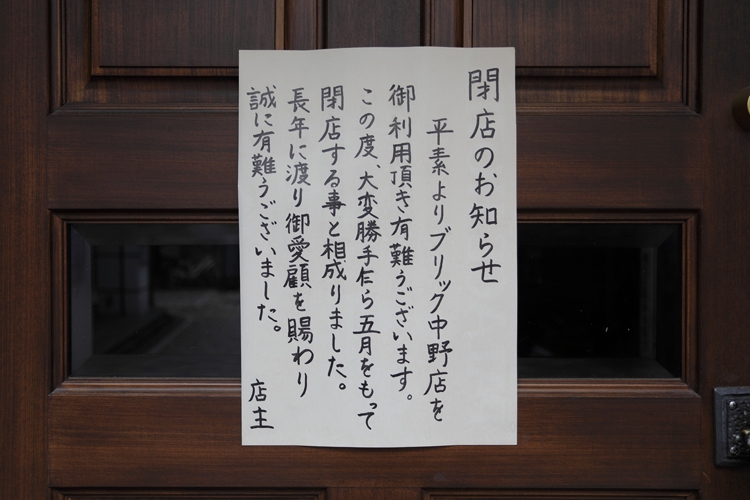 閉店のお知らせ
平素よりブリック中野店を
御利用頂き有難うございます。
この度、大変勝手乍ら五月をもって
閉店する事と相成りました。
長年に渡り御愛顧を賜わり
誠に有難うございました。
店主